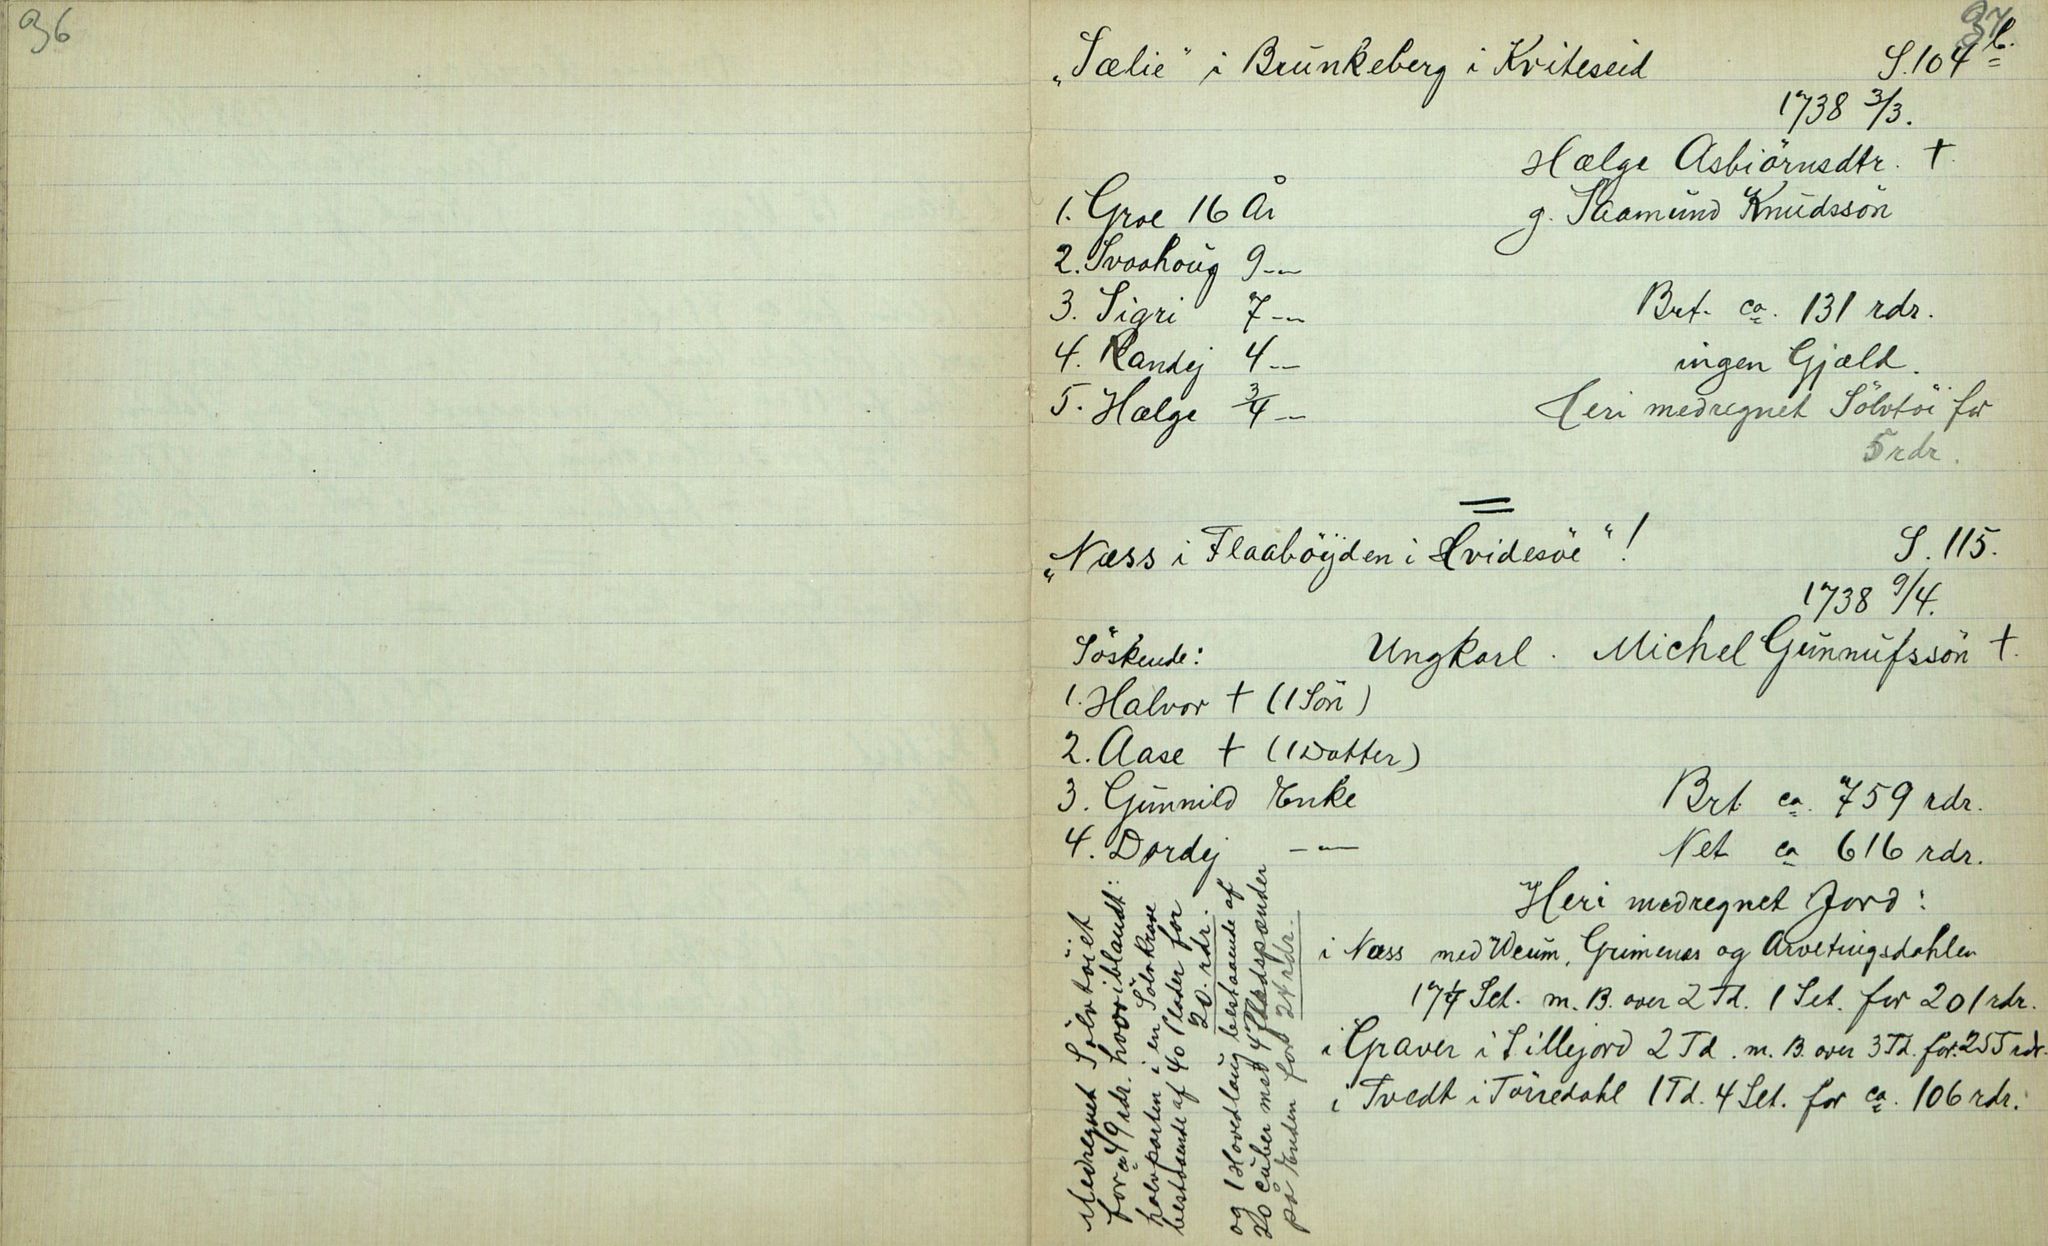 36
37
„Sælie" i Brunkeberg i Kviteseid S. 104 b.
1738 3/3.
Hælge Asbiörnsdtr. †.
1. Groe 16 År
g. Saamund Knudssön
2. Svaahoug 9 -"-
3. Sigri 7 -"-
Brt. ca. 131 rdr.
4. Randej 4 -"-
ingen Gjæld.
5. Hælge 3/4 -"-
Heri medregnet Sölvtöi for
5 rdr.
„Næss i Flaaböÿden i Hvidesöe"! S. 115.
1738 9/4.
Söskende: Ungkarl. Michel Gunnufssön †.
1. Halvor † (1 Sön)
2. Aase † (1 Datter)
3. Gunnild Enke
Brt. ca. 759 rdr.
4. Dordej -"-
Net ca 616 rdr.
Heri medregnet Jord:
i Næss med Weum, Grimenes og Arvetingsdahlen
17 Set. m. B. over 2 Td. 1 Set. for 201 rdr.
i Graver i Sillejord 2 Td. m. B. over 3 Td. for. 255 rdr.
i Tvedt i Törredahl 1 Td. 4 Set. for ca. 106 rdr.
Medregnet Sölvtöiet
for ca 49 rdr. hvoriblandt:
halvparten i en Sölvkrave
bestaaende af 40 Plader for
20. rdr.
og 1 Hovedlaug bestaaende af
20 Cuber med 4
på Enden for 24 rdr.